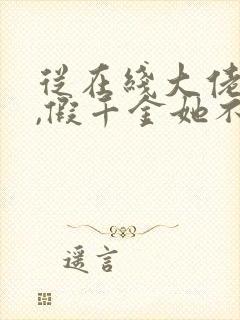 从在綫大佬
,假千金她不
遥言